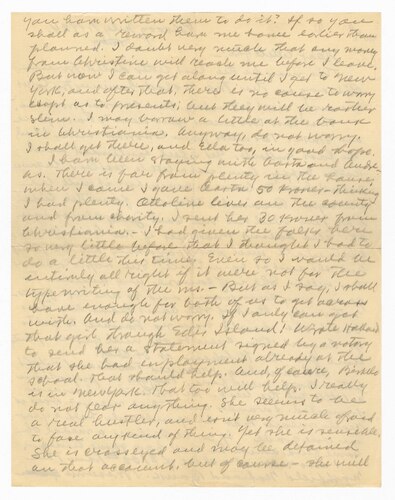 you have written them to do it? If so you
shall as a reward have me home earlier than
planned. I doubt very much that any money
from Christine will reach me before I leave.
But now I can get along until I get to New
York, and after that, there is no cause to worry
except as to presents; but they will be rather
slim. I may borrow a little at the bank
in Christiania. Anyway, do not worry.
I shall get there, and Ella too, in good shape.
I have been staying with Marta and
as. There is far from plenty in the house
when I came I gave Marta 50 kroner - thinking
I had plenty. lives on the county
and from charity. I sent her 30 kroner from
Christiania. - I had given the folks here
so very little before that I thought I had to
do a little this time. Even so I would be
entirely all right if it were not for the
typewriting of the ms. - But as I say, I shall
have enough for both of us to get across
with. And do not worry. If I only can get
that girl through Ellis Island! Wrote
to send her a statement signed by a notary
that she had employment already at the
school. That should help. And, of course,
is in New York. That too will help. I really
do not fear anything. She seems to be
a real hustler, and isn't very much afraid
to face any kind of thing. Yet she is sensible.
She is crosseyed and may be detained
on that account, but of course - she will